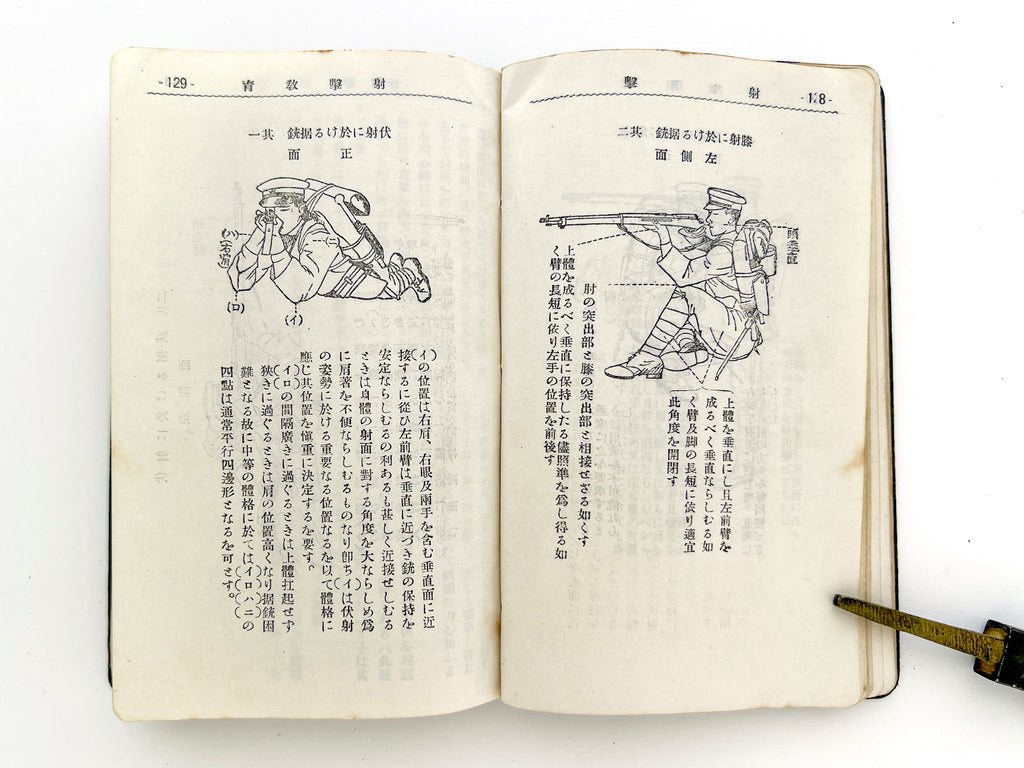 -128-
射擊
膝射に於ける据銃 其二
左側面
頭垂直
上體を垂直にし且左前臂を
成るべく垂直ならしむる如
く臂及脚の長短に依り適宜
此角度を開閉す
肘の突出部と膝の突出部と相接せざる如くす
上體を成るべく垂直に保持したる儘照準を爲し得る如
く臂の長短に依り左手の位置を前後す
射擊教育
-129-
伏射に於ける据銃 其一
正面
(ハ)
(右肩)
(ロ)
(イ)
(イ)の位置は右肩、右眼及兩手を含む垂直面に近
接するに從ひ左前臂は垂直に近づき銃の保持を
安定ならしむるの利あるも甚しく近接せしむる
ときは身體の射面に對する角度を大ならしめ爲
に肩著を不便ならしむるものなり卽ち(イ)は伏射
の姿勢に於ける重要なる位置なるを以て體格に
應じ其位置を愼重に決定するを要す。
(イ)(ロ)の間隔廣きに過ぐるときは上體扛起せず
狹きに過ぐるときは肩の位置高くなり据銃困
難となる故に中等の體格に於ては(イ)(ロ)(ハ)(ニ)の
四點は通常平行四邊形となるを可とす。